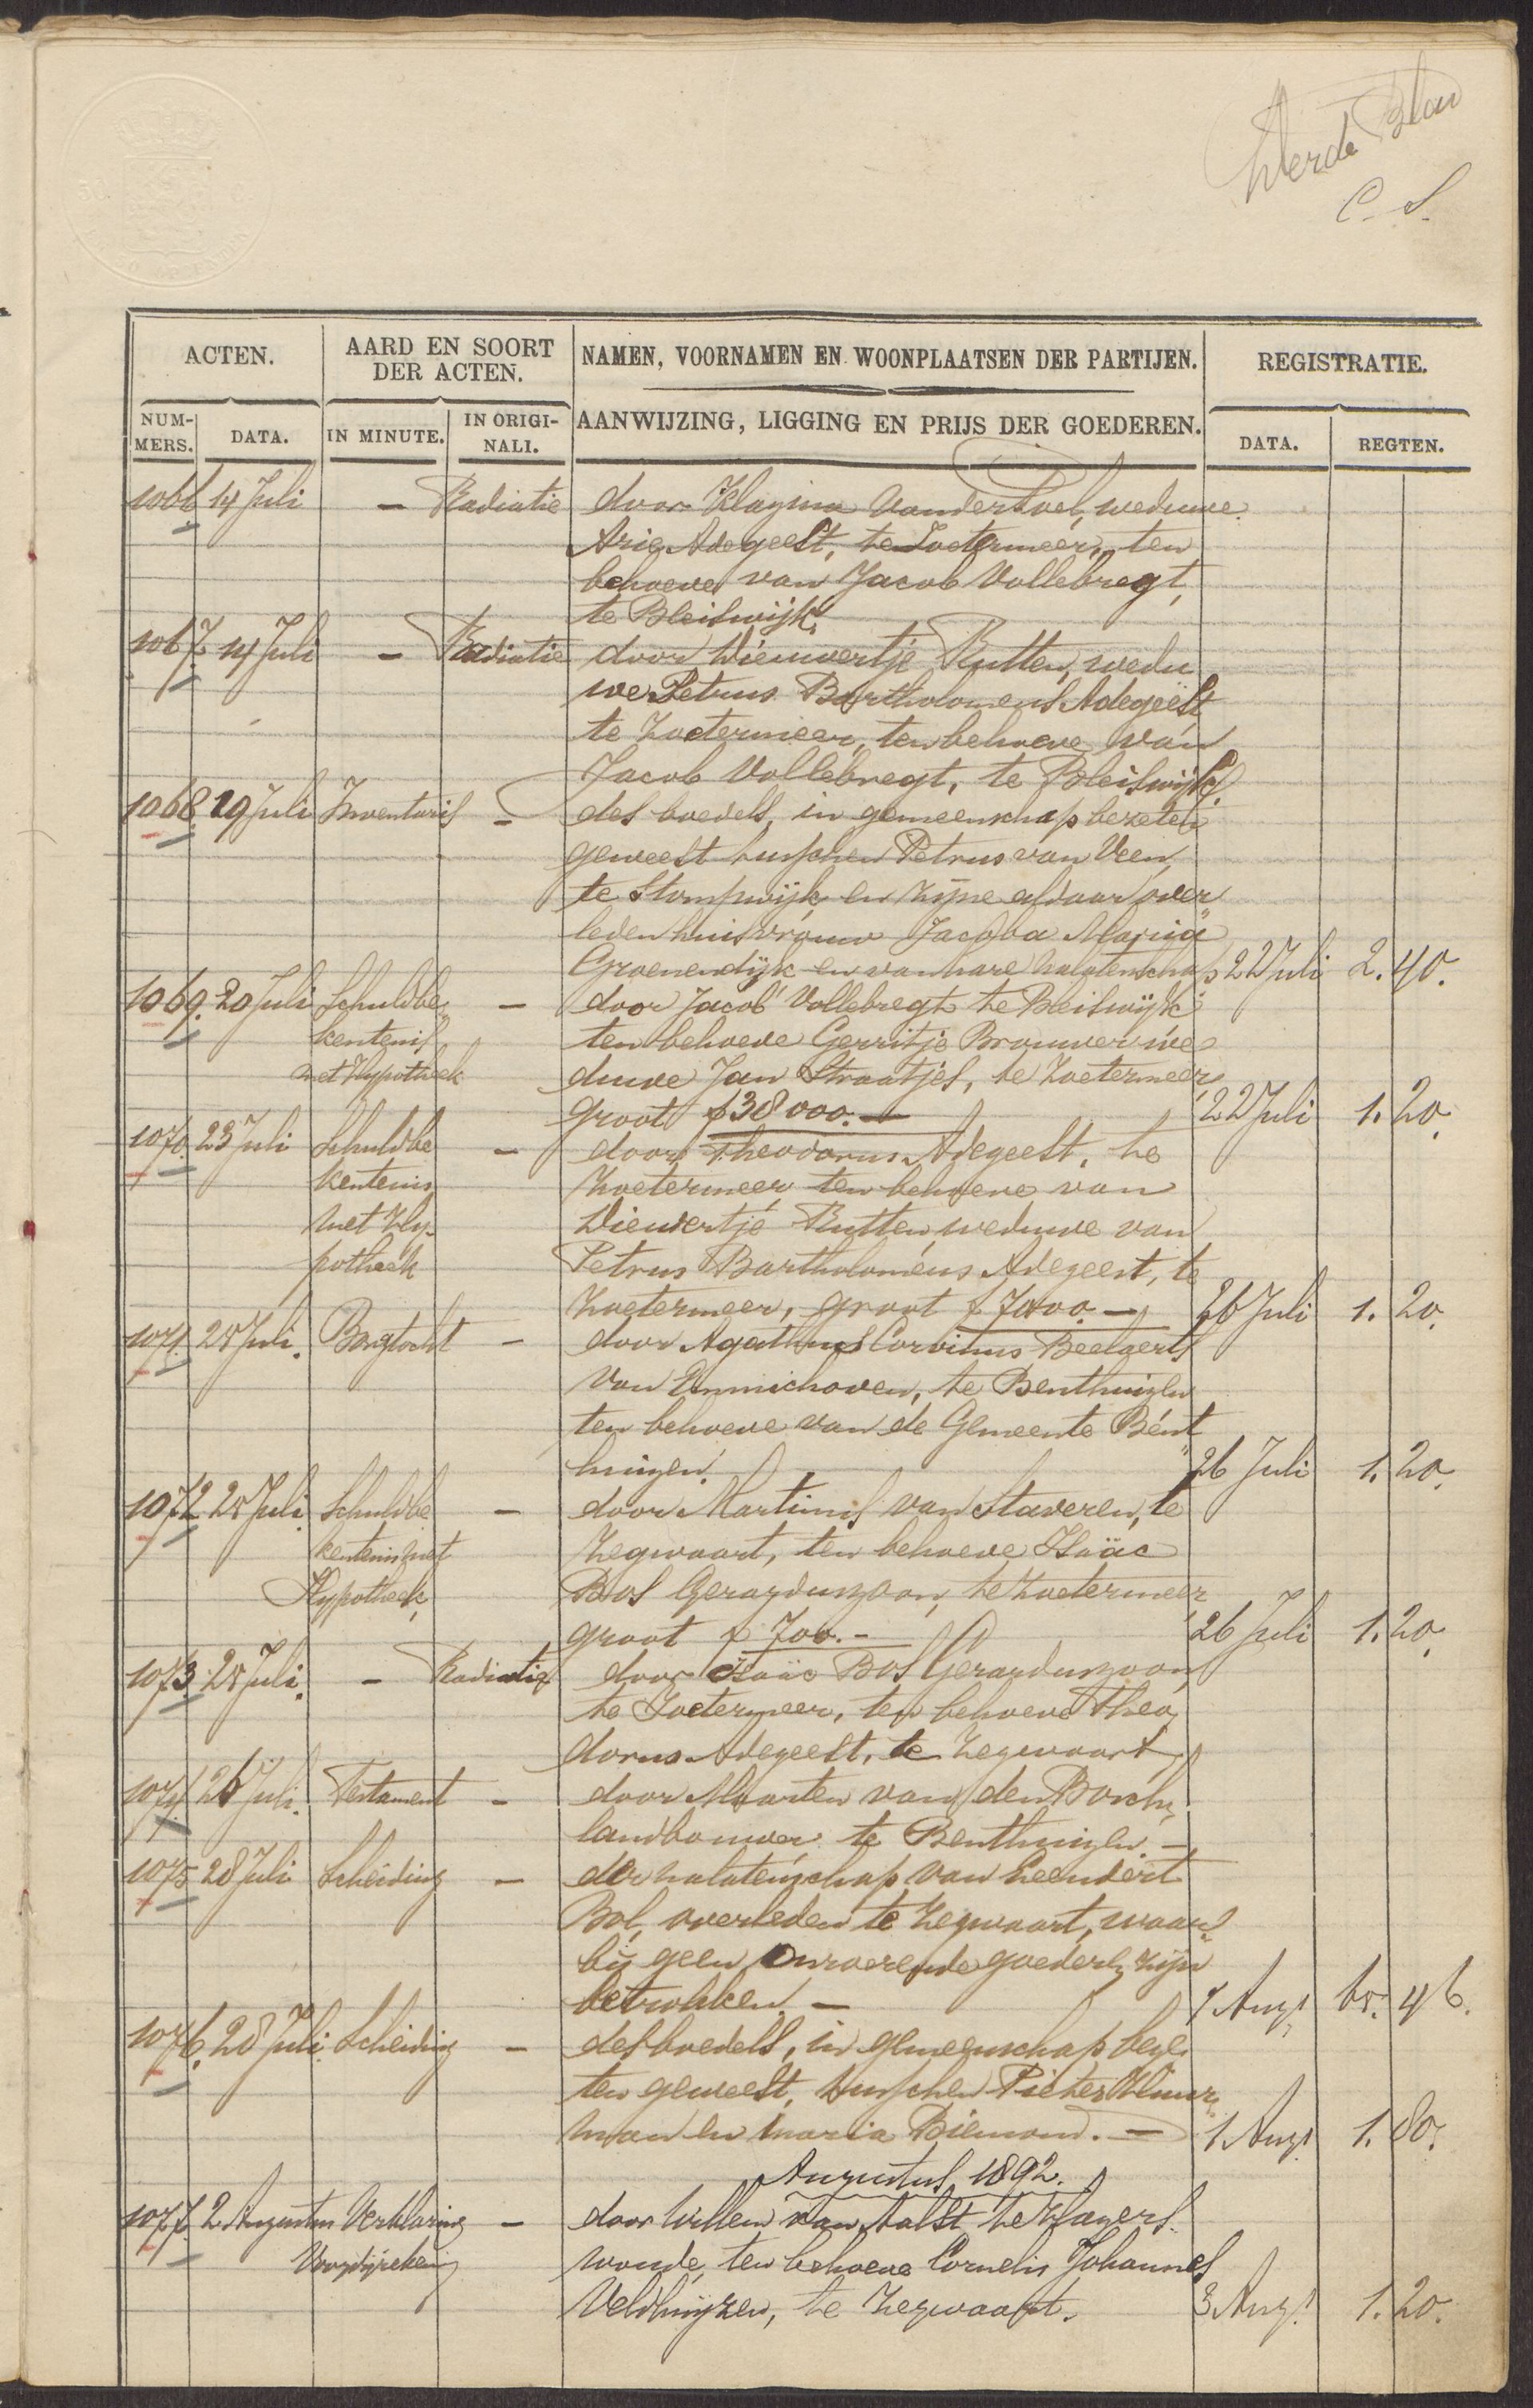 Vierde Blad
C. S.
ACTEN. AARD EN SOORT DER ACTEN. NAMEN, VOORNAMEN EN WOONPLAATSEN DER PARTIJEN. REGISTRATIE.
NUMMERS. DATA. IN MINUTE. IN ORIGINALI. AANWIJZING, LIGGING EN PRIJS DER GOEDEREN. DATA. REGTEN.
1066 14 Juli – Radiatie door Klazina van der Poel, weduwe
Arie Adegeest, te Zoetermeer, ten
behoeve van Jacob Vollebregt,
te Bleiswijk.
1067 14 Juli – Radiatie door Dieuwertje Rutten, wedu
we Petrus Bartholomeus Adegeest
te Zoetermeer, ten behoeve van
Jacob Vollebregt, te Bleiswijk.
1068 19 Juli Inventaris – des boedels, in gemeenschap bezeten
geweest tusschen Petrus van Veen,
te Stompwijk en zijne aldaar over
leden huisvrouw Jacoba Maria
Groenendijk en van hare nalatenschap 22 Juli 2. 40.
1069. 20 Juli Schuldbe – door Jacob Vollebregt te Bleiswijk
kentenis ten behoeve Gerritje Brouwer we
met Hypotheek duwe Jan Straatjes, te Zoetermeer,
groot f 38000.– 22 Juli 1. 20.
1070. 23 Juli Schuldbe – door Theodorus Adegeest, te
kentenis Zoetermeer, ten behoeve van
met Hy- Dieuwertje Rutten, weduwe van
potheek Petrus Bartholomeus Adegeest, te
Zoetermeer, groot f 7000.– 26 Juli 1. 20.
1071. 25 Juli. Borgtocht – door Agathus Corvinus Beelaerts
van Emmichoven, te Benthuizen
ten behoeve van de Gemeente Bent
huizen. 26 Juli 1. 20.
1072 25 Juli. Schuldbe – door Martinus van Staveren, te
kentenis met Zegwaart, ten behoeve Isaäc
Hypotheek, Bos Gerarduszoon, te Zoetermeer
groot f 700.– 26 Juli 1. 20.
1073. 25 Juli. – Radiatie door Isaäc Bos Gerarduszoon,
te Zoetermeer, ten behoeve Theo
dorus Adegeest, te Zegwaart,
1074 26 Juli. Testament – door Maarten van den Bosch,
landbouwer te Benthuizen. –
1075 28 Juli Scheiding – der nalatenschap van Leendert
Bol, overleden te Zegwaart, waar
bij geen onroerende goederen zijn
betrokken. – 1 Aug. 65. 46.
1076. 28 Juli. Scheiding – des boedels, in gemeenschap beze
ten geweest, tusschen Pieter
man en Maria Biemond. – 1 Aug. 1. 80.
Augustus 1892.
1077. 2 Augustus Verklaring – door Willem van Aalst, te Hazers
woude, ten behoeve Cornelis Johannes
Veldhuijzen, te Zegwaart. 3 Aug. 1. 20.